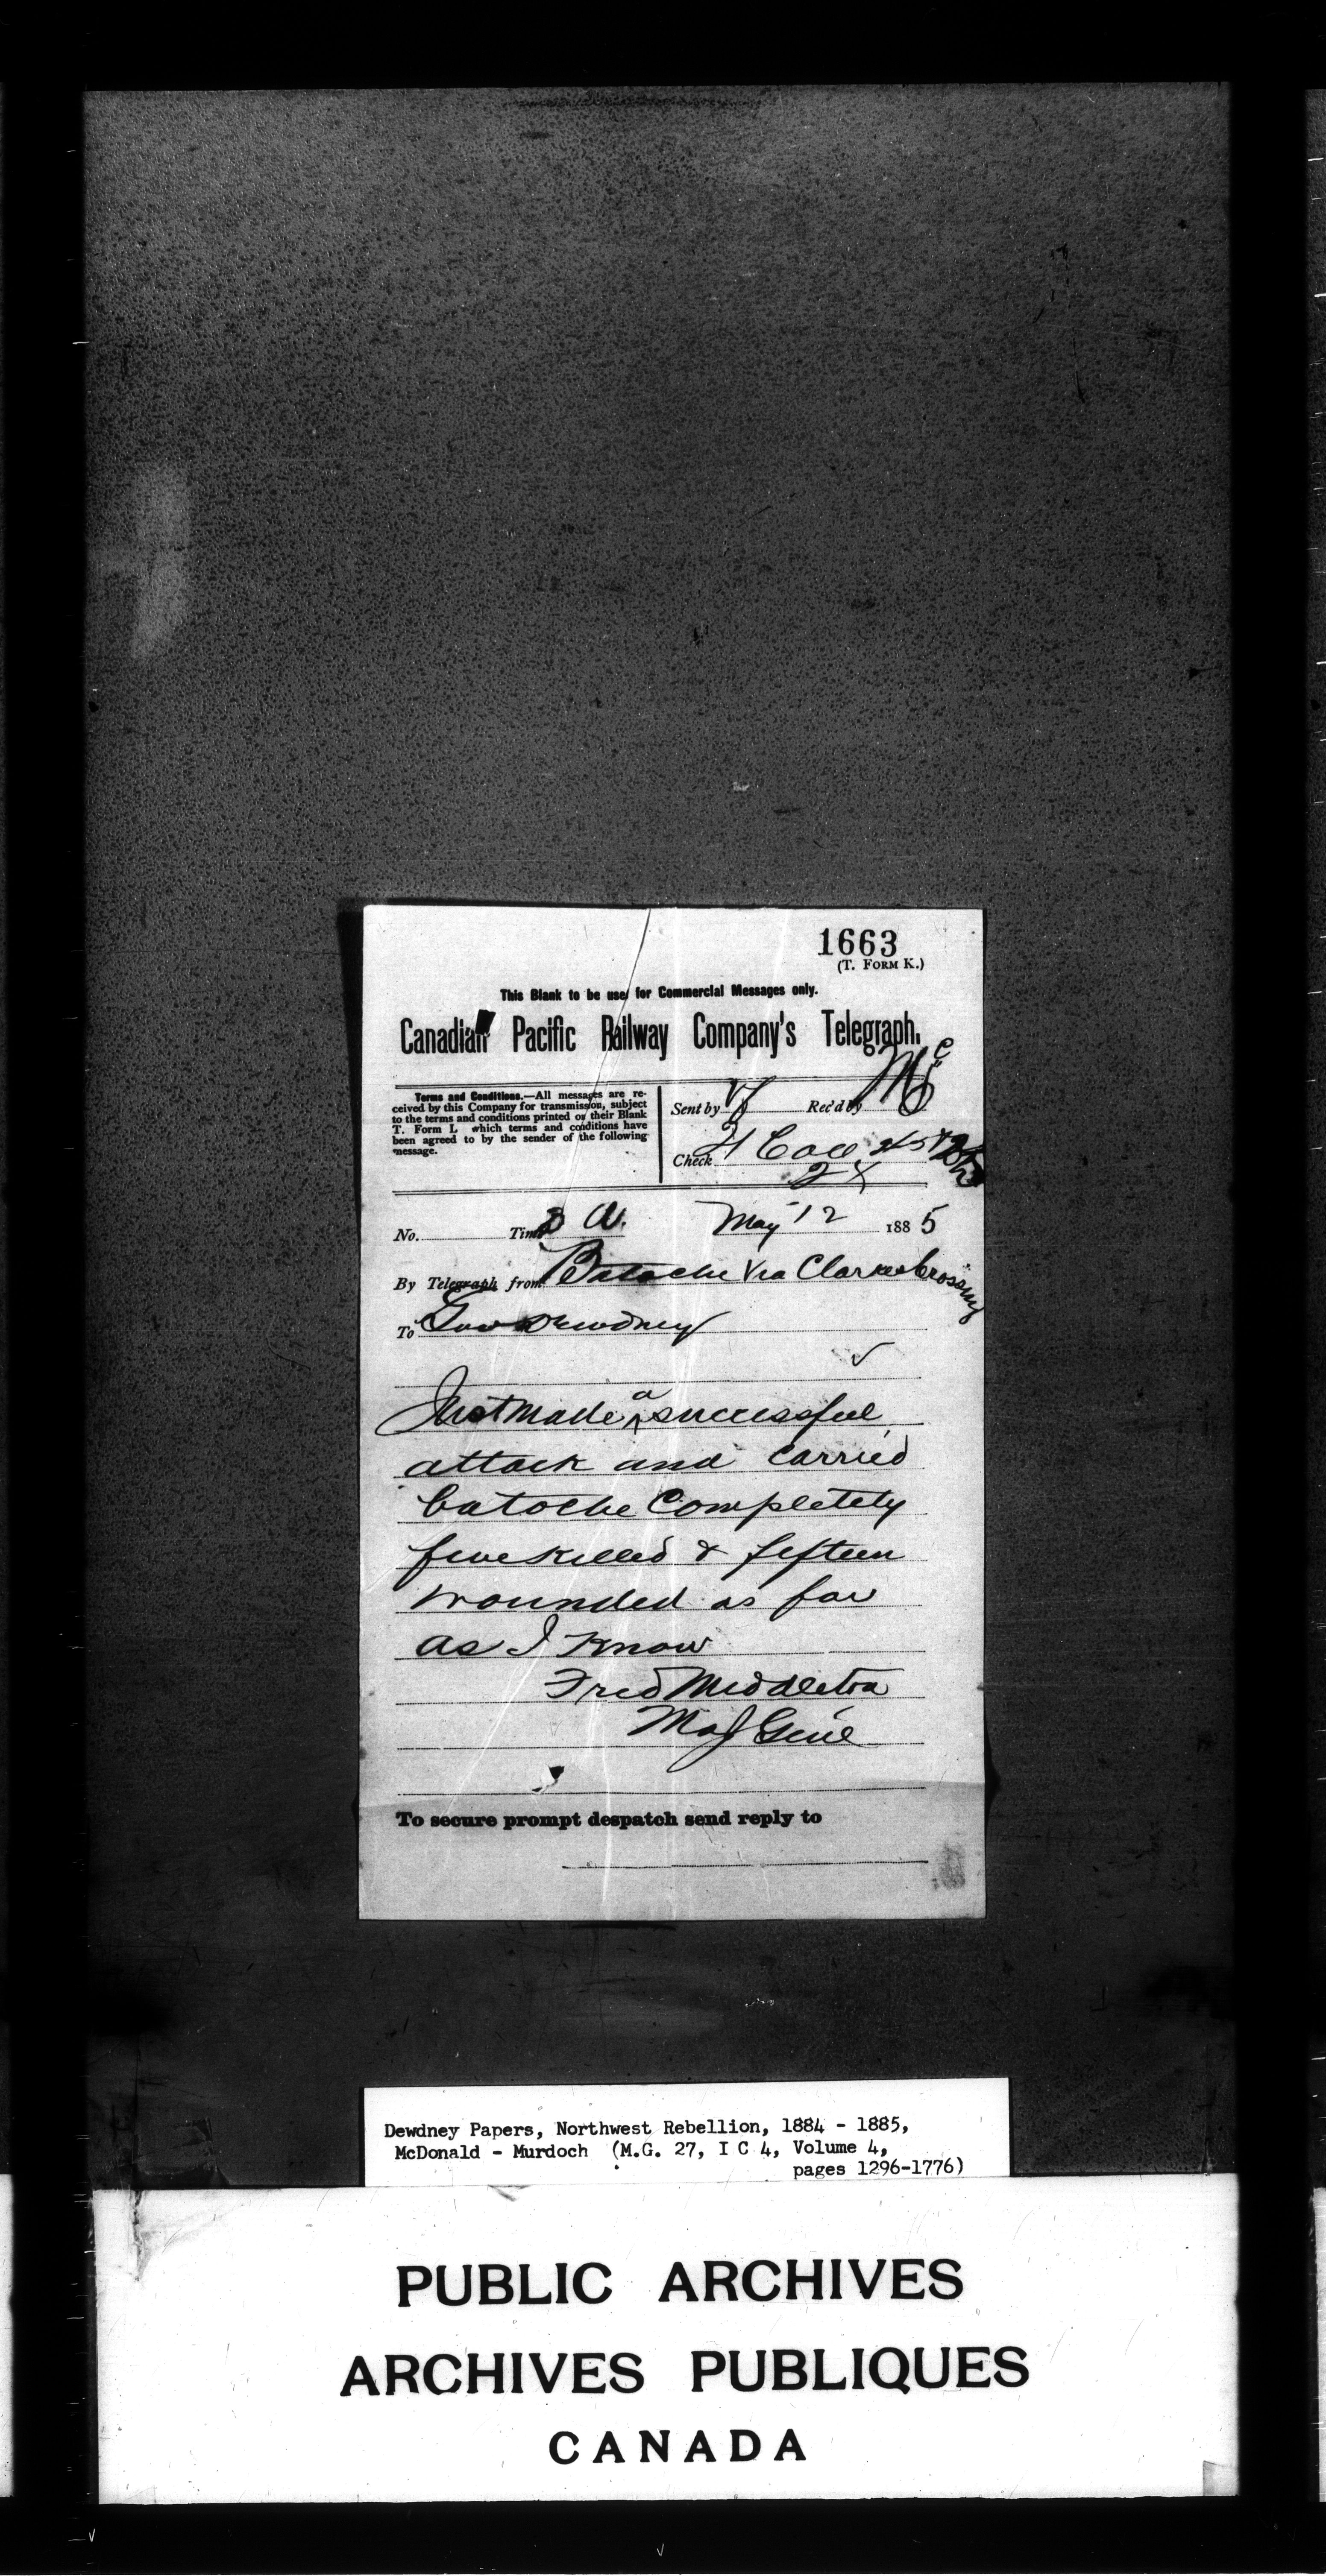 1663
(T. FORM K.)
This Blank to be used for Commercial Messages only.
Canadian Pacific Railway Company's Telegraph.
Terms and Conditions.—All messages are re-
ceived by this Company for transmission, subject
to the terms and conditions printed on their Blank
T. Form I., which terms and conditions have
been agreed to by the sender of the following
message.
Sent by Rec'd by
Check
No. Time May 12 1885
By Telegraph from Batoche Via Clarkes Crossing
To Gov Dewdney
Just made a successful
attack and carried
batoche Completely
five killed & fifteen
wounded as far
as I know
Fred Middleton
Maj Genl
To secure prompt despatch send reply to
Dewdney Papers, Northwest Rebellion, 1884 - 1885,
McDonald - Murdoch (M.G. 27, I C 4, Volume 4,
pages 1296-1776)
PUBLIC ARCHIVES
ARCHIVES PUBLIQUES
CANADA